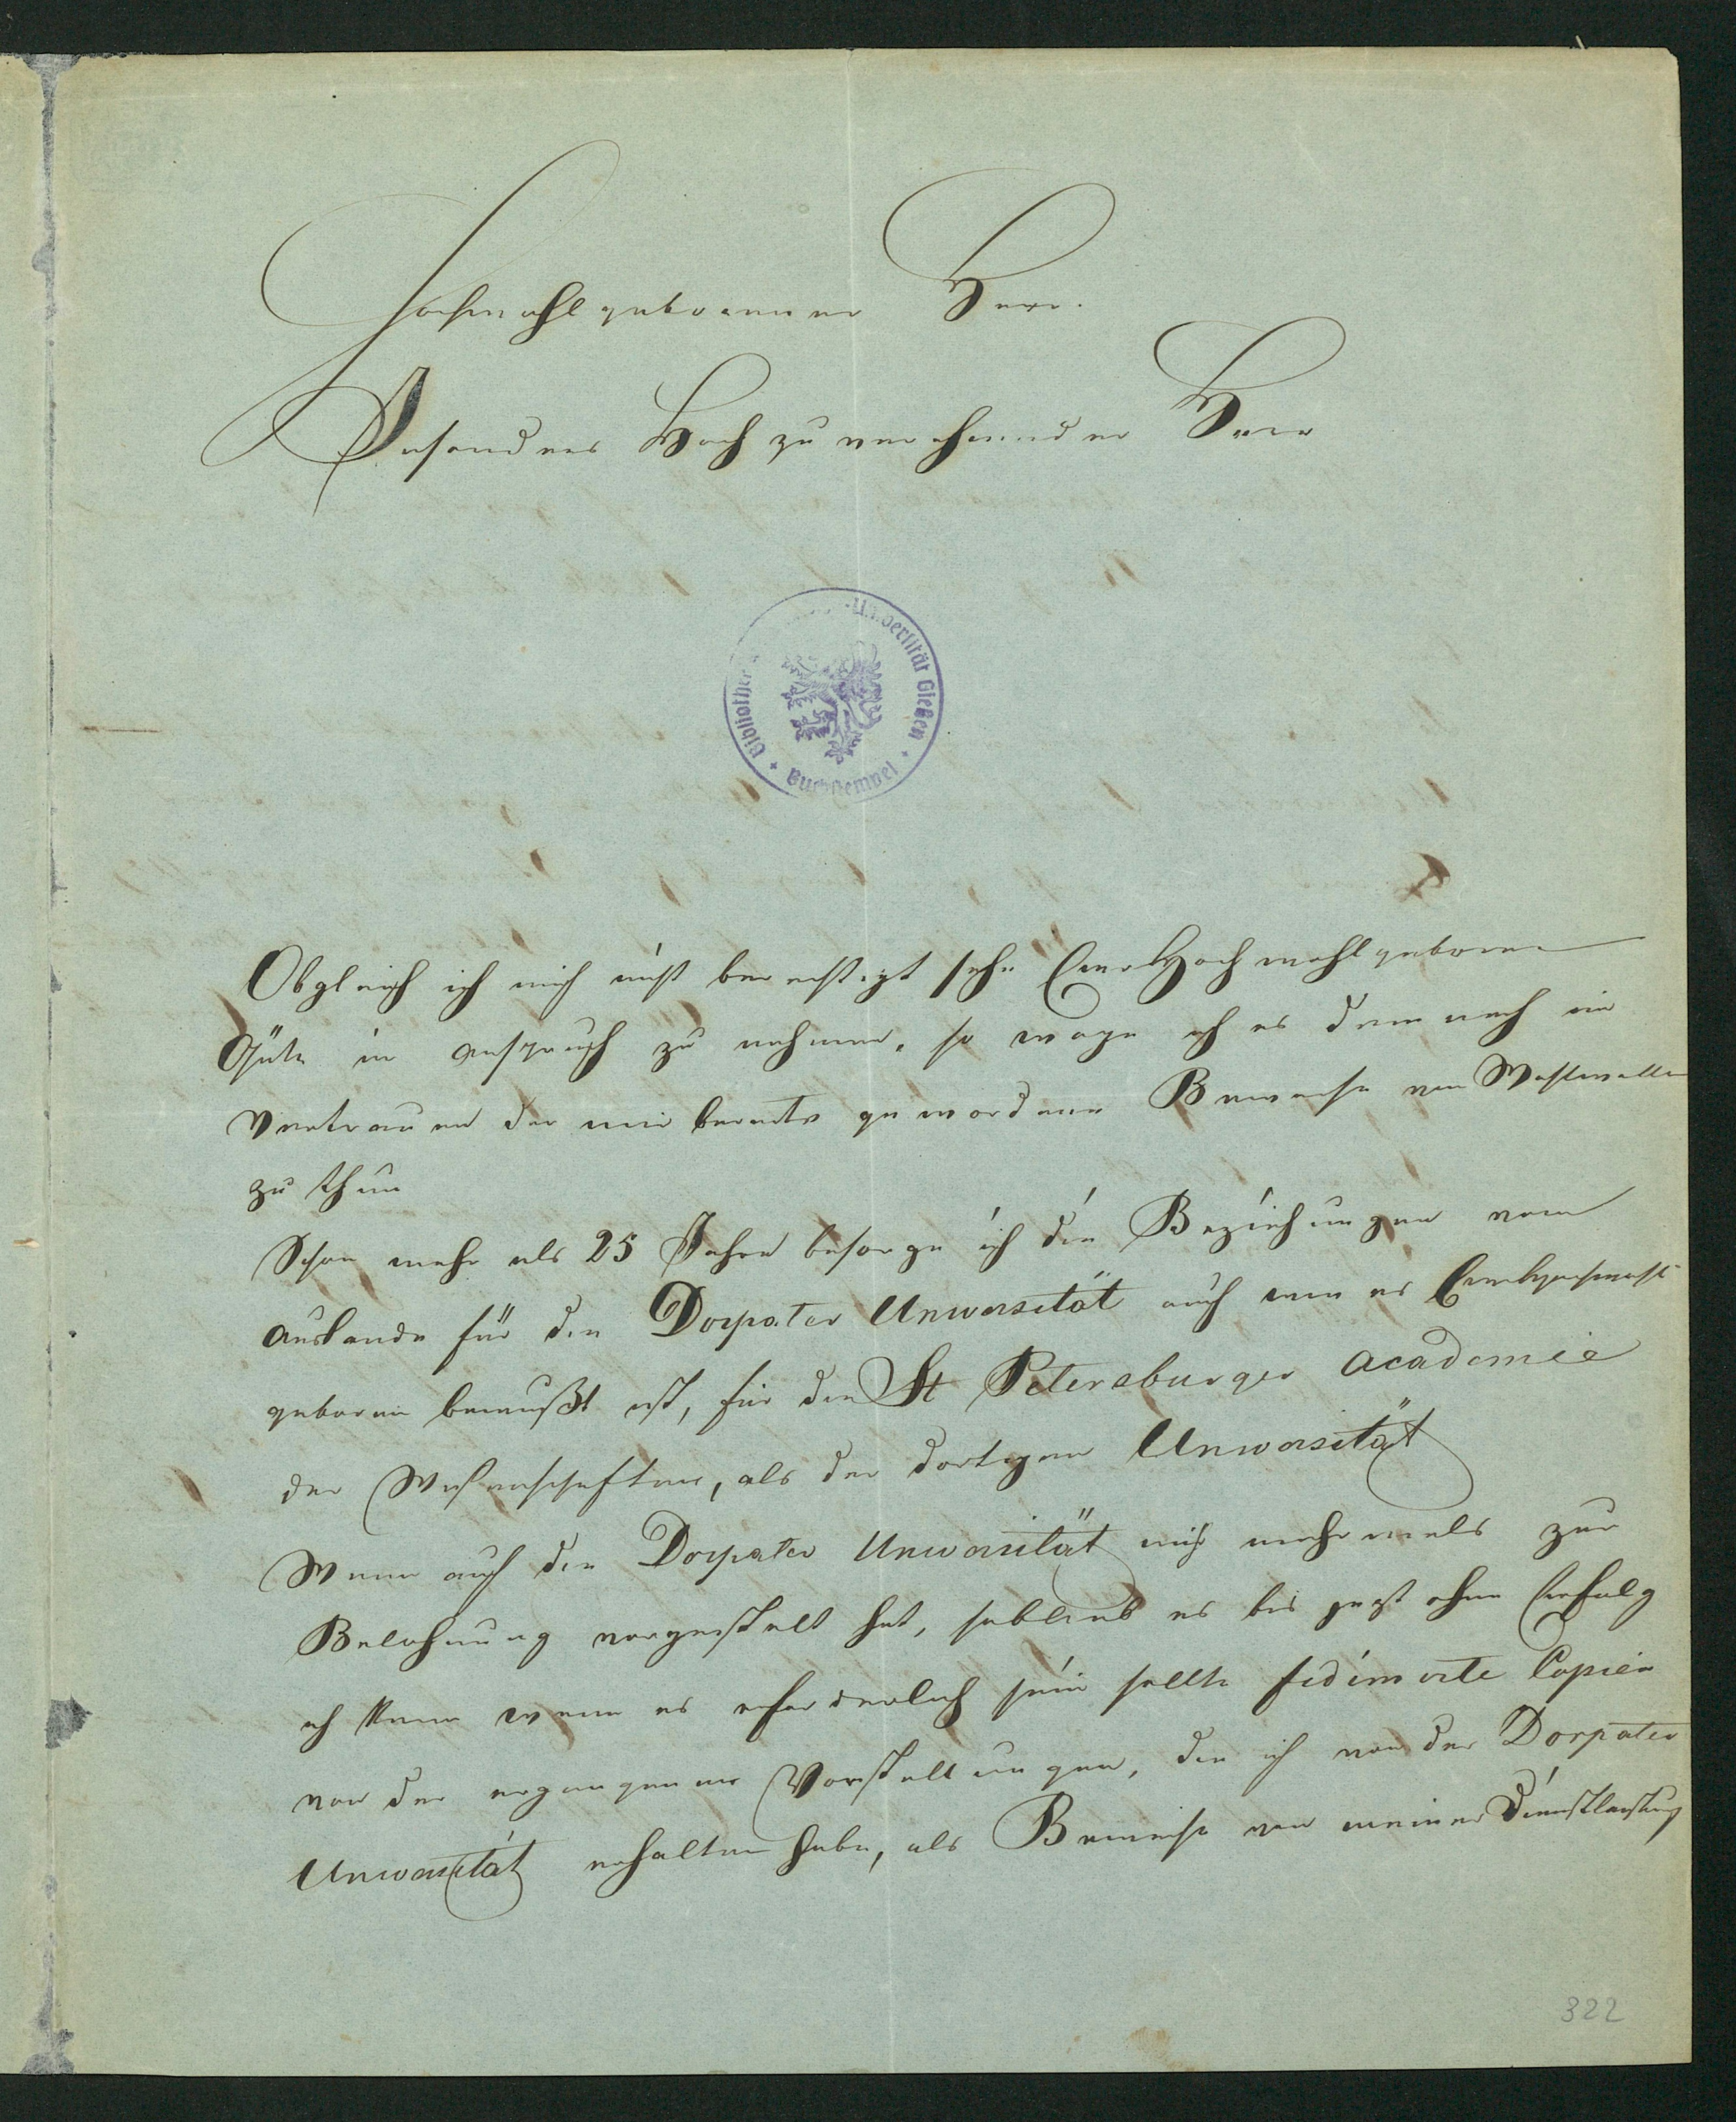 Hochwohlgeborner Herr.
Besonders Hoch zu verehrender Herr
Bibliothek Universität Gießen
Buchstempel
Obgleich ich mich nicht berechtigt sehe Euer Hochwohlgeboren
Güte in Anspruch zu nehmen, so wage ich es dennoch im
Vertrauen der mir bereits gewordenen Beweise von Wohlwollen
zu thun
Schon mehr als 25 Jahre besorge ich die Beziehungen vom
Auslande für die Dorpater Universität auch wie es Euer Hochwohl-
geboren bewußt ist, für die St Petersburger Academie
der Wissenschaften, als der dortigen Universität
Wenn auch die Dorpater Universität mich mehrmals zur
Belohnung vorgestellt hat, so blieb es bis jezt ohne Erfolg
ich kann wenn es erforderlich sein sollte fidimirte Copien
von den ergangenen Vorstellungen, die ich von der Dorpater
Universität erhalten habe, als Beweise von meiner Dienstleistung
322